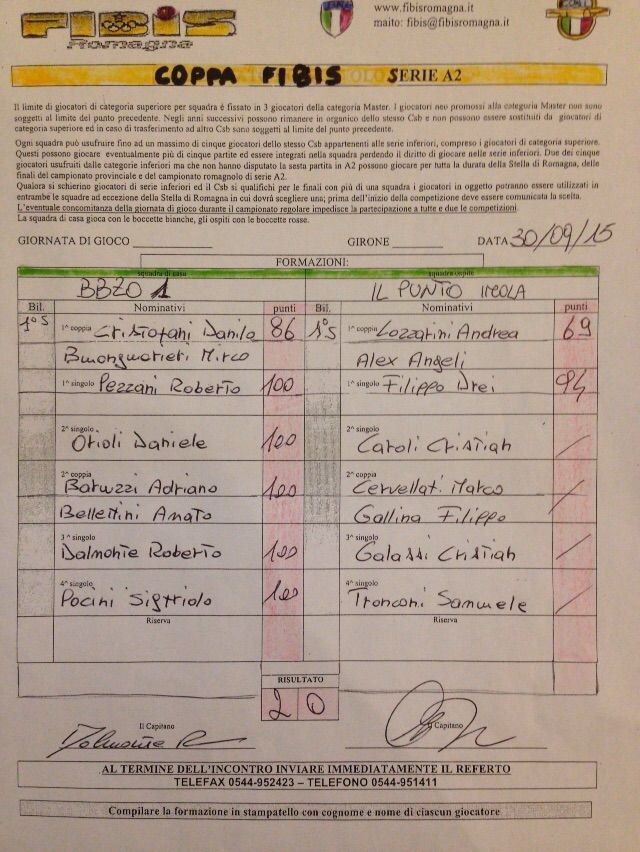 FIBIS
Romagna
www.fibisromagna.it
maito: fibis@fibisromagna.it
COPPA FIBIS SERIE A2
Il limite di giocatori di categoria superiore per squadra è fissato in 3 giocatori della categoria Master. I giocatori neo promossi alla categoria Master non sono
soggetti al limite del punto precedente. Negli anni successivi possono rimanere in organico dello stesso Csb e non possono essere sostituiti da giocatori di
categoria superiore ed in caso di trasferimento ad altro Csb sono soggetti al limite del punto precedente.
Ogni squadra può usufruire fino ad un massimo di cinque giocatori dello stesso Csb appartenenti alle serie inferiori, compreso i giocatori di categoria superiore.
Questi possono giocare eventualmente più di cinque partite ed essere integrati nella squadra perdendo il diritto di giocare nelle serie inferiori. Due dei cinque
giocatori usufruiti dalle categorie inferiori ma che non hanno disputato la sesta partita in A2 possono giocare per tutta la durata della Stella di Romagna, delle
finali del campionato provinciale e del campionato romagnolo di serie A2.
Qualora si schierino giocatori di serie inferiori ed il Csb si qualifichi per le finali con più di una squadra i giocatori in oggetto potranno essere utilizzati in
entrambe le squadre ad eccezione della Stella di Romagna in cui dovrà scegliere una; prima dell'inizio della competizione deve essere comunicata la scelta.
L'eventuale concomitanza della giornata di gioco durante il campionato regolare impedisce la partecipazione a tutte e due le competizioni.
La squadra di casa gioca con le boccette bianche, gli ospiti con le boccette rosse.
GIORNATA DI GIOCO GIRONE DATA 30/09/15
FORMAZIONI:
squadra di casa squadra ospite
BBZO 1 IL PUNTO IMOLA
Bil. Nominativi punti Bil. Nominativi punti
1°S 1^ coppia Cristofani Danilo 86 1°S 1^ coppia Lozzarini Andrea 69
Mirco Alex Angeli
1^ singolo Pezzani Roberto 100 1^ singolo Filippo Drei 94
2^ singolo Orioli Daniele 100 2^ singolo Caroli Cristian /
2^ coppia Baruzzi Adriano 100 2^ coppia Cervellati Marco /
Bellettini Amato Gallina Filippo
3^ singolo Dalmonte Roberto 100 3^ singolo Galassi Cristian /
4^ singolo Pocini 100 4^ singolo Tronconi Samuele /
Riserva Riserva
RISULTATO
2 0
Il Capitano Il Capitano
Dalmonte R
AL TERMINE DELL'INCONTRO INVIARE IMMEDIATAMENTE IL REFERTO
TELEFAX 0544-952423 – TELEFONO 0544-951411
Compilare la formazione in stampatello con cognome e nome di ciascun giocatore